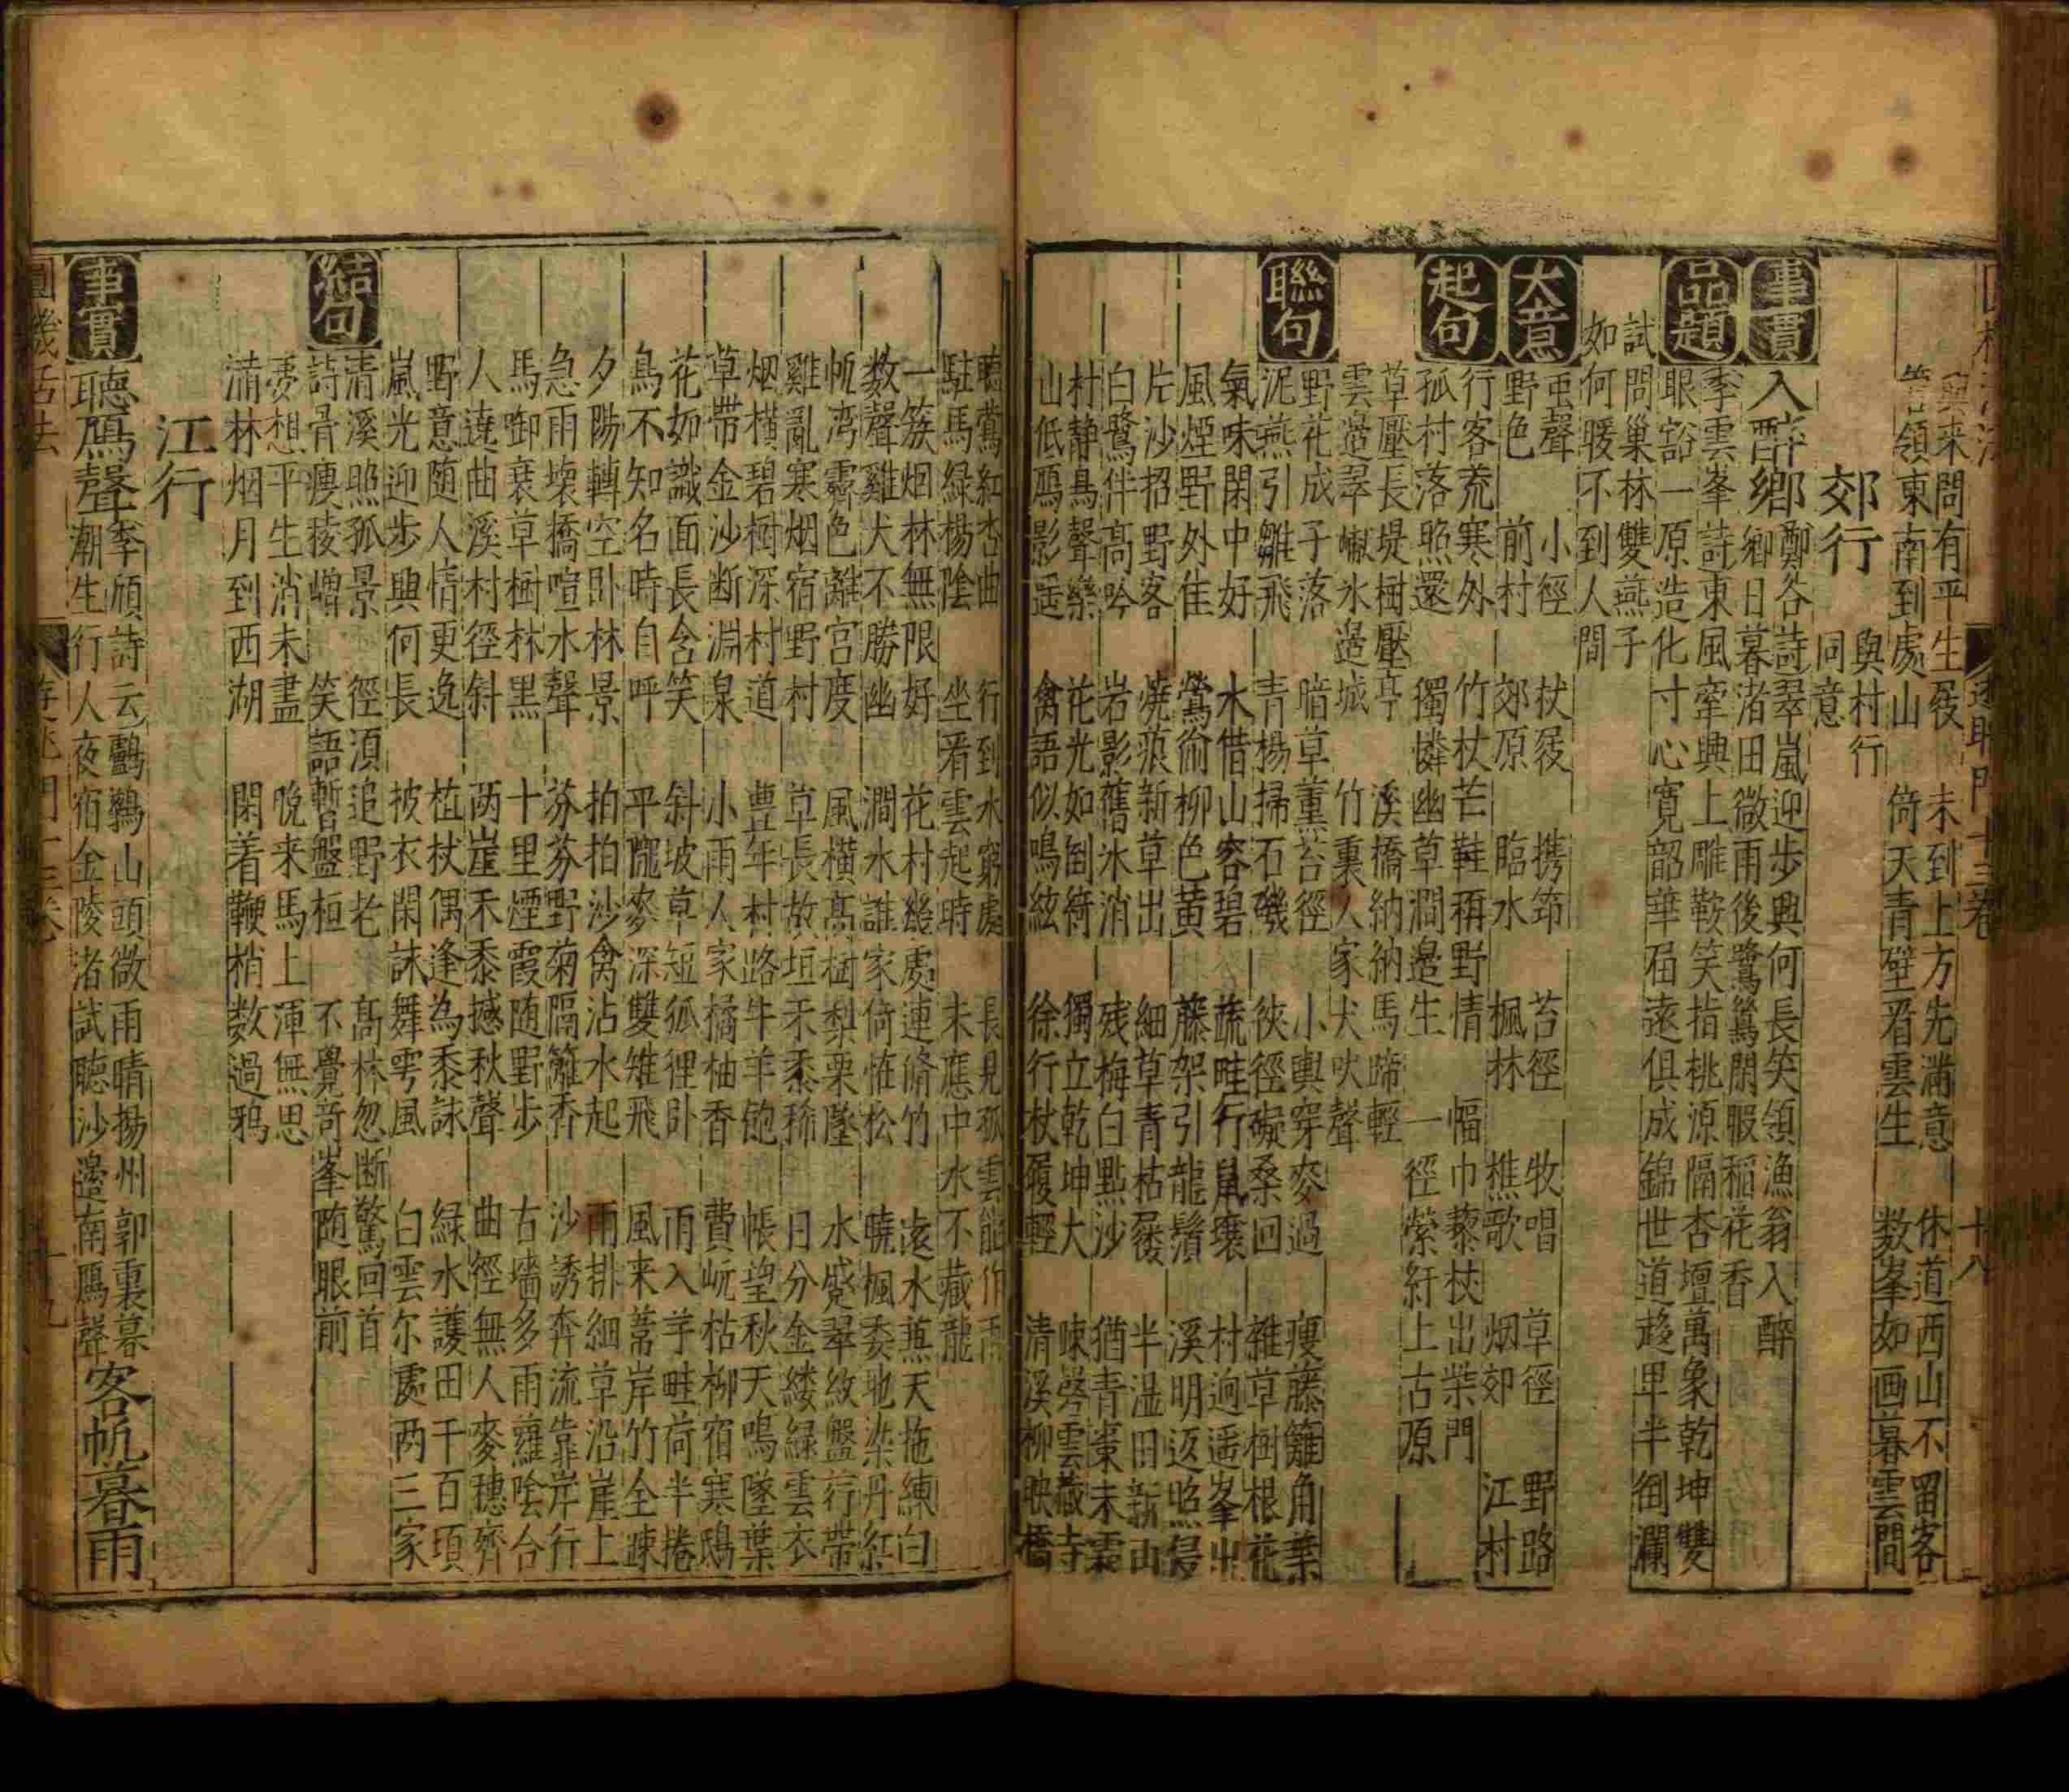 興来問有平生屐 未到上方先滿意 休道西山不留客
管領東南到處山 倚天青壁看雲生 数峯如画暮雲間
郊行 與村行
同意
事實 入醉鄉 鄭谷詩翠嵐迎步興何長笑領漁翁入醉
鄉日暮渚田微雨後鷺鷥閒暇稻花香
品題 季雲峯詩東風牽興上雕鞍笑指桃源隔杏壇萬象乾坤雙
眼谿一原造化寸心寛韶華屆遠俱成錦世道趍卑半倒瀾
試問巢林雙燕子
如何暖不到人間
大意 聲 小徑 杖屐 携筇 苔徑 牧唱 草徑 野路
野色 前村 郊原 臨水 楓林 樵歌 烟郊 江村
起句 行客荒寒外 竹杖芒鞋稱野情 幅巾藜杖出柴門
孤村落照還 獨憐幽草澗邉生 一徑縈紆上古原
草壓長堤樹壓亭 溪橋納納馬蹄輕
雲邉翠巘氷邉城 竹裏人家犬吠聲
聯句 野花成子落 暗草薰苔徑 小輿穿麥過 瘦藤籬角葉
泥燕引雛飛 青楊掃石磯 狹徑礙桑回 雜草樹根花
氣味閑中好 水借山容碧 蔬畦行鼠壤 村逈遥峯出
風煙野外佳 鶯偷柳色黄 藤架引龍鬚 溪明返照侵
片沙招野客 燒痕新草出 細草青枯屐 半湿田新雨
白鷺伴高吟 岩影舊氷消 残梅白點沙 猶青棗未霜
村静鳥聲樂 花光如倒綺 獨立乾坤大 旁雲藏寺
山低鴈影遥 禽語似鳴絃 徐行杖履輕 清溪柳映橋
聴鶯紅杏曲 行到水窮處 長見孤雲能作雨
駐馬緑楊陰 坐看雲起時 未應中水不藏龍
一簇烟林無限好 花村絶處連脩竹 遠水蘸天拖練白
数聲雞犬不勝幽 澗水誰家倚怪松 曉楓委地染丹紅
帆湾霽色離宮度 風横高樹梨栗墜 水蹙翠紋盤行帯
雞亂寒烟宿野村 草長故垣禾黍稀 日分金縷緑雲衣
烟横碧樹深村道 豊年村路牛羊飽 帳望秋天鳴墜葉
草帶金沙断淵泉 小雨人家橘柚香 費岏枯柳宿寒鴟
花如識面長含笑 斜坡草短狐狸卧 雨入芋畦荷半捲
鳥不知名時自呼 平隴麥深雙雉飛 風来蒿岸竹全踈
夕陽轉空卧林景 拍拍沙禽沾水起 雨排細草沿崖上
急雨壊橋喧水聲 芬芬野菊隔籬香 沙誘奔流靠岸行
馬啣衰草樹林黒 十里煙霞随野步 古墻多雨蘿陰合
人遶曲溪村徑斜 两崖禾黍撼秋聲 曲徑無人麥穗齊
野意随人情更逸 植杖偶逢為黍詠 緑水護田千百頃
嵐光迎步興何長 披衣閑詠舞雩風 白雲尓處两三家
結句 清溪照孤景 徑須追野老 高林忽断驚回首
詩骨瘦稜嶒 笑語暫盤桓 不覺竒峯随眼前
夣想平生消未盡 晩来馬上渾無思
清林烟月到西湖 閑着鞭梢数過鴉
江行
事實 聽鴈聲 李頎詩云鷓鷀山頭微雨晴揚州郭裏暮
潮生行人夜宿金陵渚試聴沙邉南鴈聲 客帆暮雨